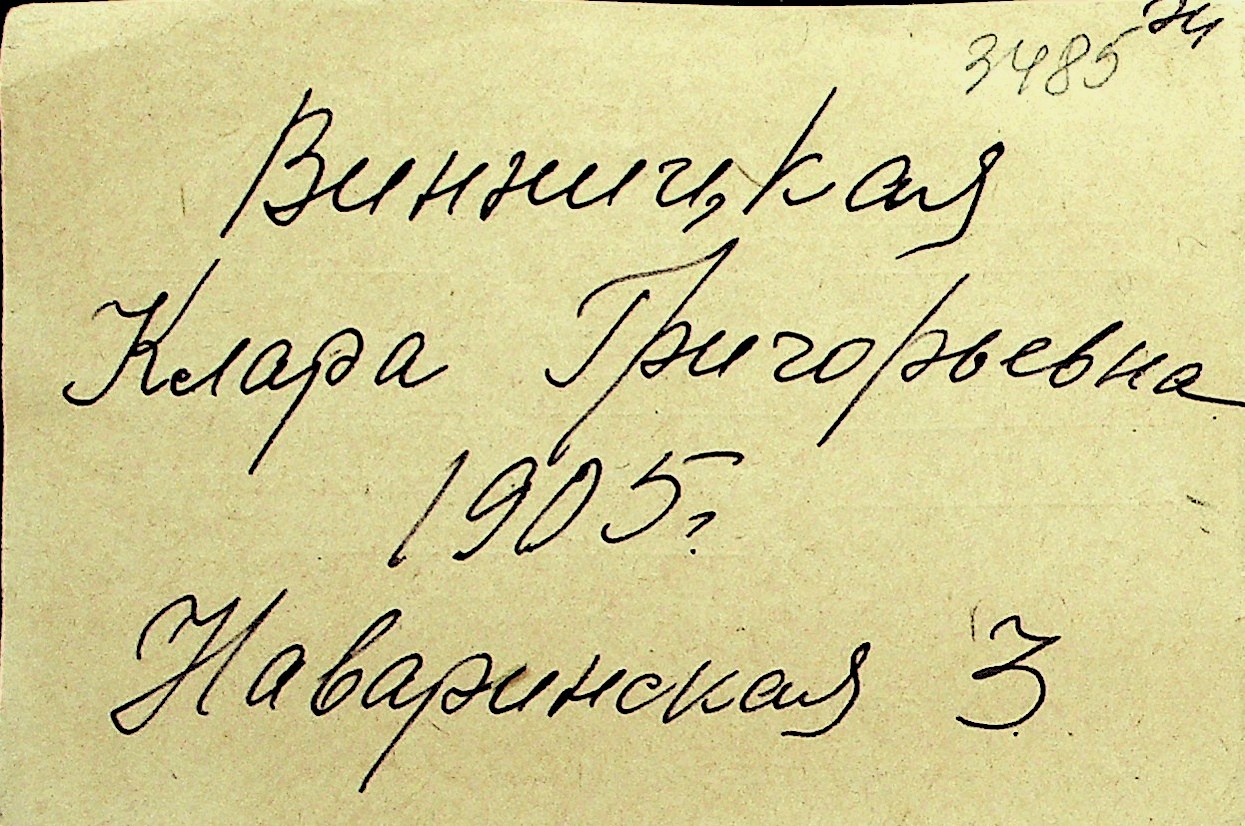 3485
Винницкая
Клара Григорьевна
1905г.
Наваринская 3